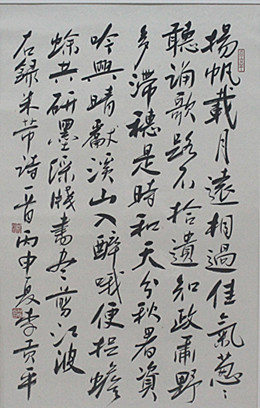 揚帆載月遠相過佳氣葱々
聽誦歌路不拾遺知政肅野
多滯穗是時和天分秋暑資
吟興晴獻溪山入醉哦便捉蟾
蜍共研墨綵牋書尽剪江波
右錄米芾詩一首丙申夏李貢平